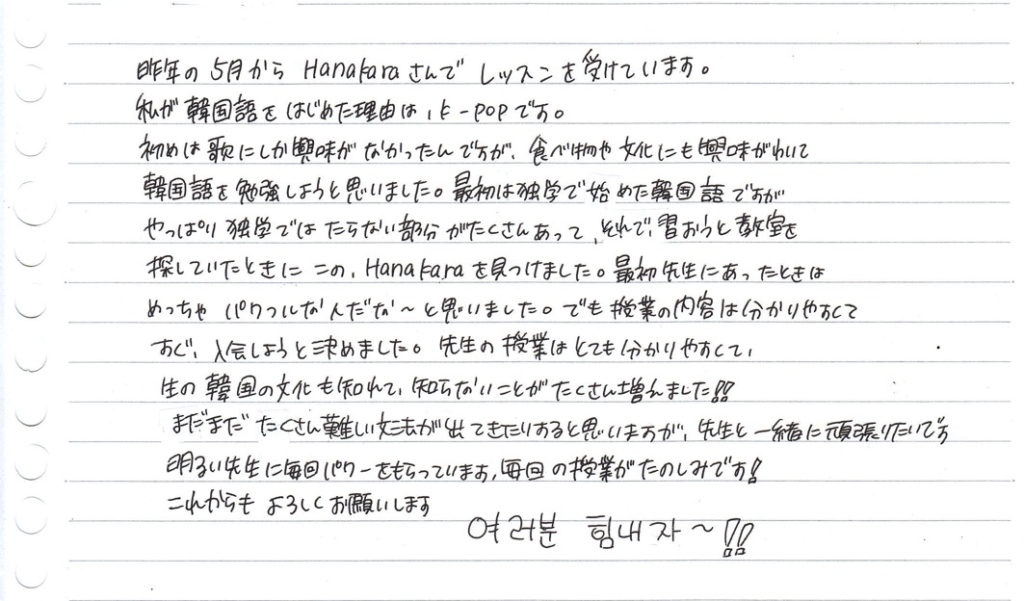 昨年の5月から Hanakaraさんで レッスンを受けています。
私が韓国語をはじめた理由は、K-POPです。
初めは歌にしか興味がなかったんですが、食べ物や文化にも興味がわいて
韓国語を勉強しようと思いました。最初は独学で始めた韓国語ですが
やっぱり独学ではたらない部分がたくさんあって、それで習おうと教室を
探していたときにこの、Hanakaraを見つけました。最初先生にあったときは
めっちゃパワフルな人だな〜と思いました。でも授業の内容は分かりやすくて
すぐ、入会しようと決めました。先生の授業はとても分かりやすくて、
生の韓国の文化も知れて、知らないことがたくさん増えました!!
まだまだたくさん難しい文法が出てきたりすると思いますが、先生と一緒に頑張りたいです
明るい先生に毎回パワーをもらっています、毎回の授業がたのしみです!
これからもよろしくお願いします
여러분 힘내자~!!